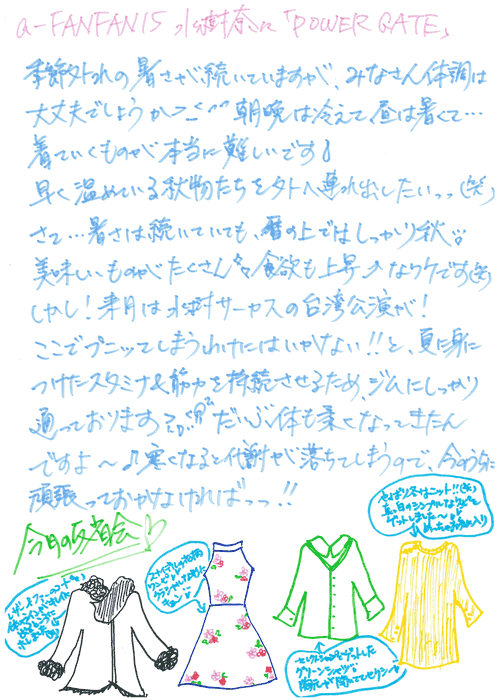 a-FANFAN15 水樹奈々「POWER GATE」
季節外れの暑さが続いていますが、みなさん体調は
大丈夫でしょうか>_<!! 朝晩は冷えて、昼は暑くて…
着ていくものが本当に難しいです♪
早く温めている秋物たちを外へ連れ出したいっっ(笑)
さて…暑さは続いていても、暦の上ではしっかり秋
美味しいものがたくさん 食欲も上昇⤴なワケです(笑)
しかし!来月は水樹サーカスの台湾公演が!
ここでプニってしまうわけにはいかない!!と、夏に身に
つけたスタミナ&筋力を持続させるため、ジムにしっかり
通っております だいぶ体も柔くなってきたん
ですよ〜♪寒くなると代謝が落ちてしまうので、今のうちに
頑張っておかなければっっ!!
今月の反省会
やはり冬はニット!!(笑)
ゲットしました〜
ゲットした
グリーンシャツ